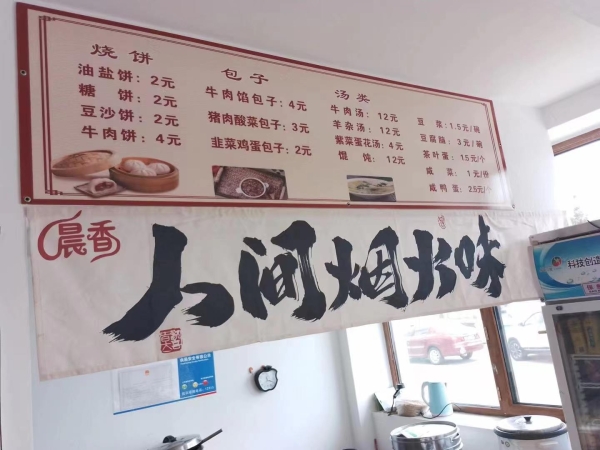 烧饼
油盐饼：2元
糖饼：2元
豆沙饼：2元
牛肉饼：4元
包子
牛肉馅包子：4元
猪肉酸菜包子：3元
韭菜鸡蛋包子：2元
汤类
牛肉汤：12元
羊杂汤：12元
紫菜蛋花汤：4元
馄饨：12元
豆浆：1.5元/碗
豆腐脑：3元/碗
茶叶蛋：1.5元/个
咸菜：1元/份
咸鸭蛋：2.5元/个
晨香
人间烟火味
科技创造